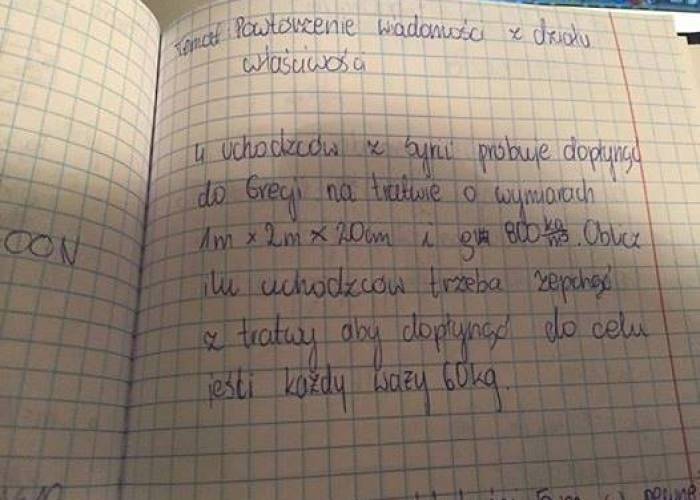 Temat: Powtórzenie wiadomości z działu
właściwości
4 uchodzców z Syrii próbuje dopłynąć
do Grecji na tratwie o wymiarach
1m × 2m × 20cm i 800 kg/m³. Oblicz
ilu uchodzców trzeba zepchnąć
z tratwy aby dopłynąć do celu
jeśli każdy waży 60kg.
OON